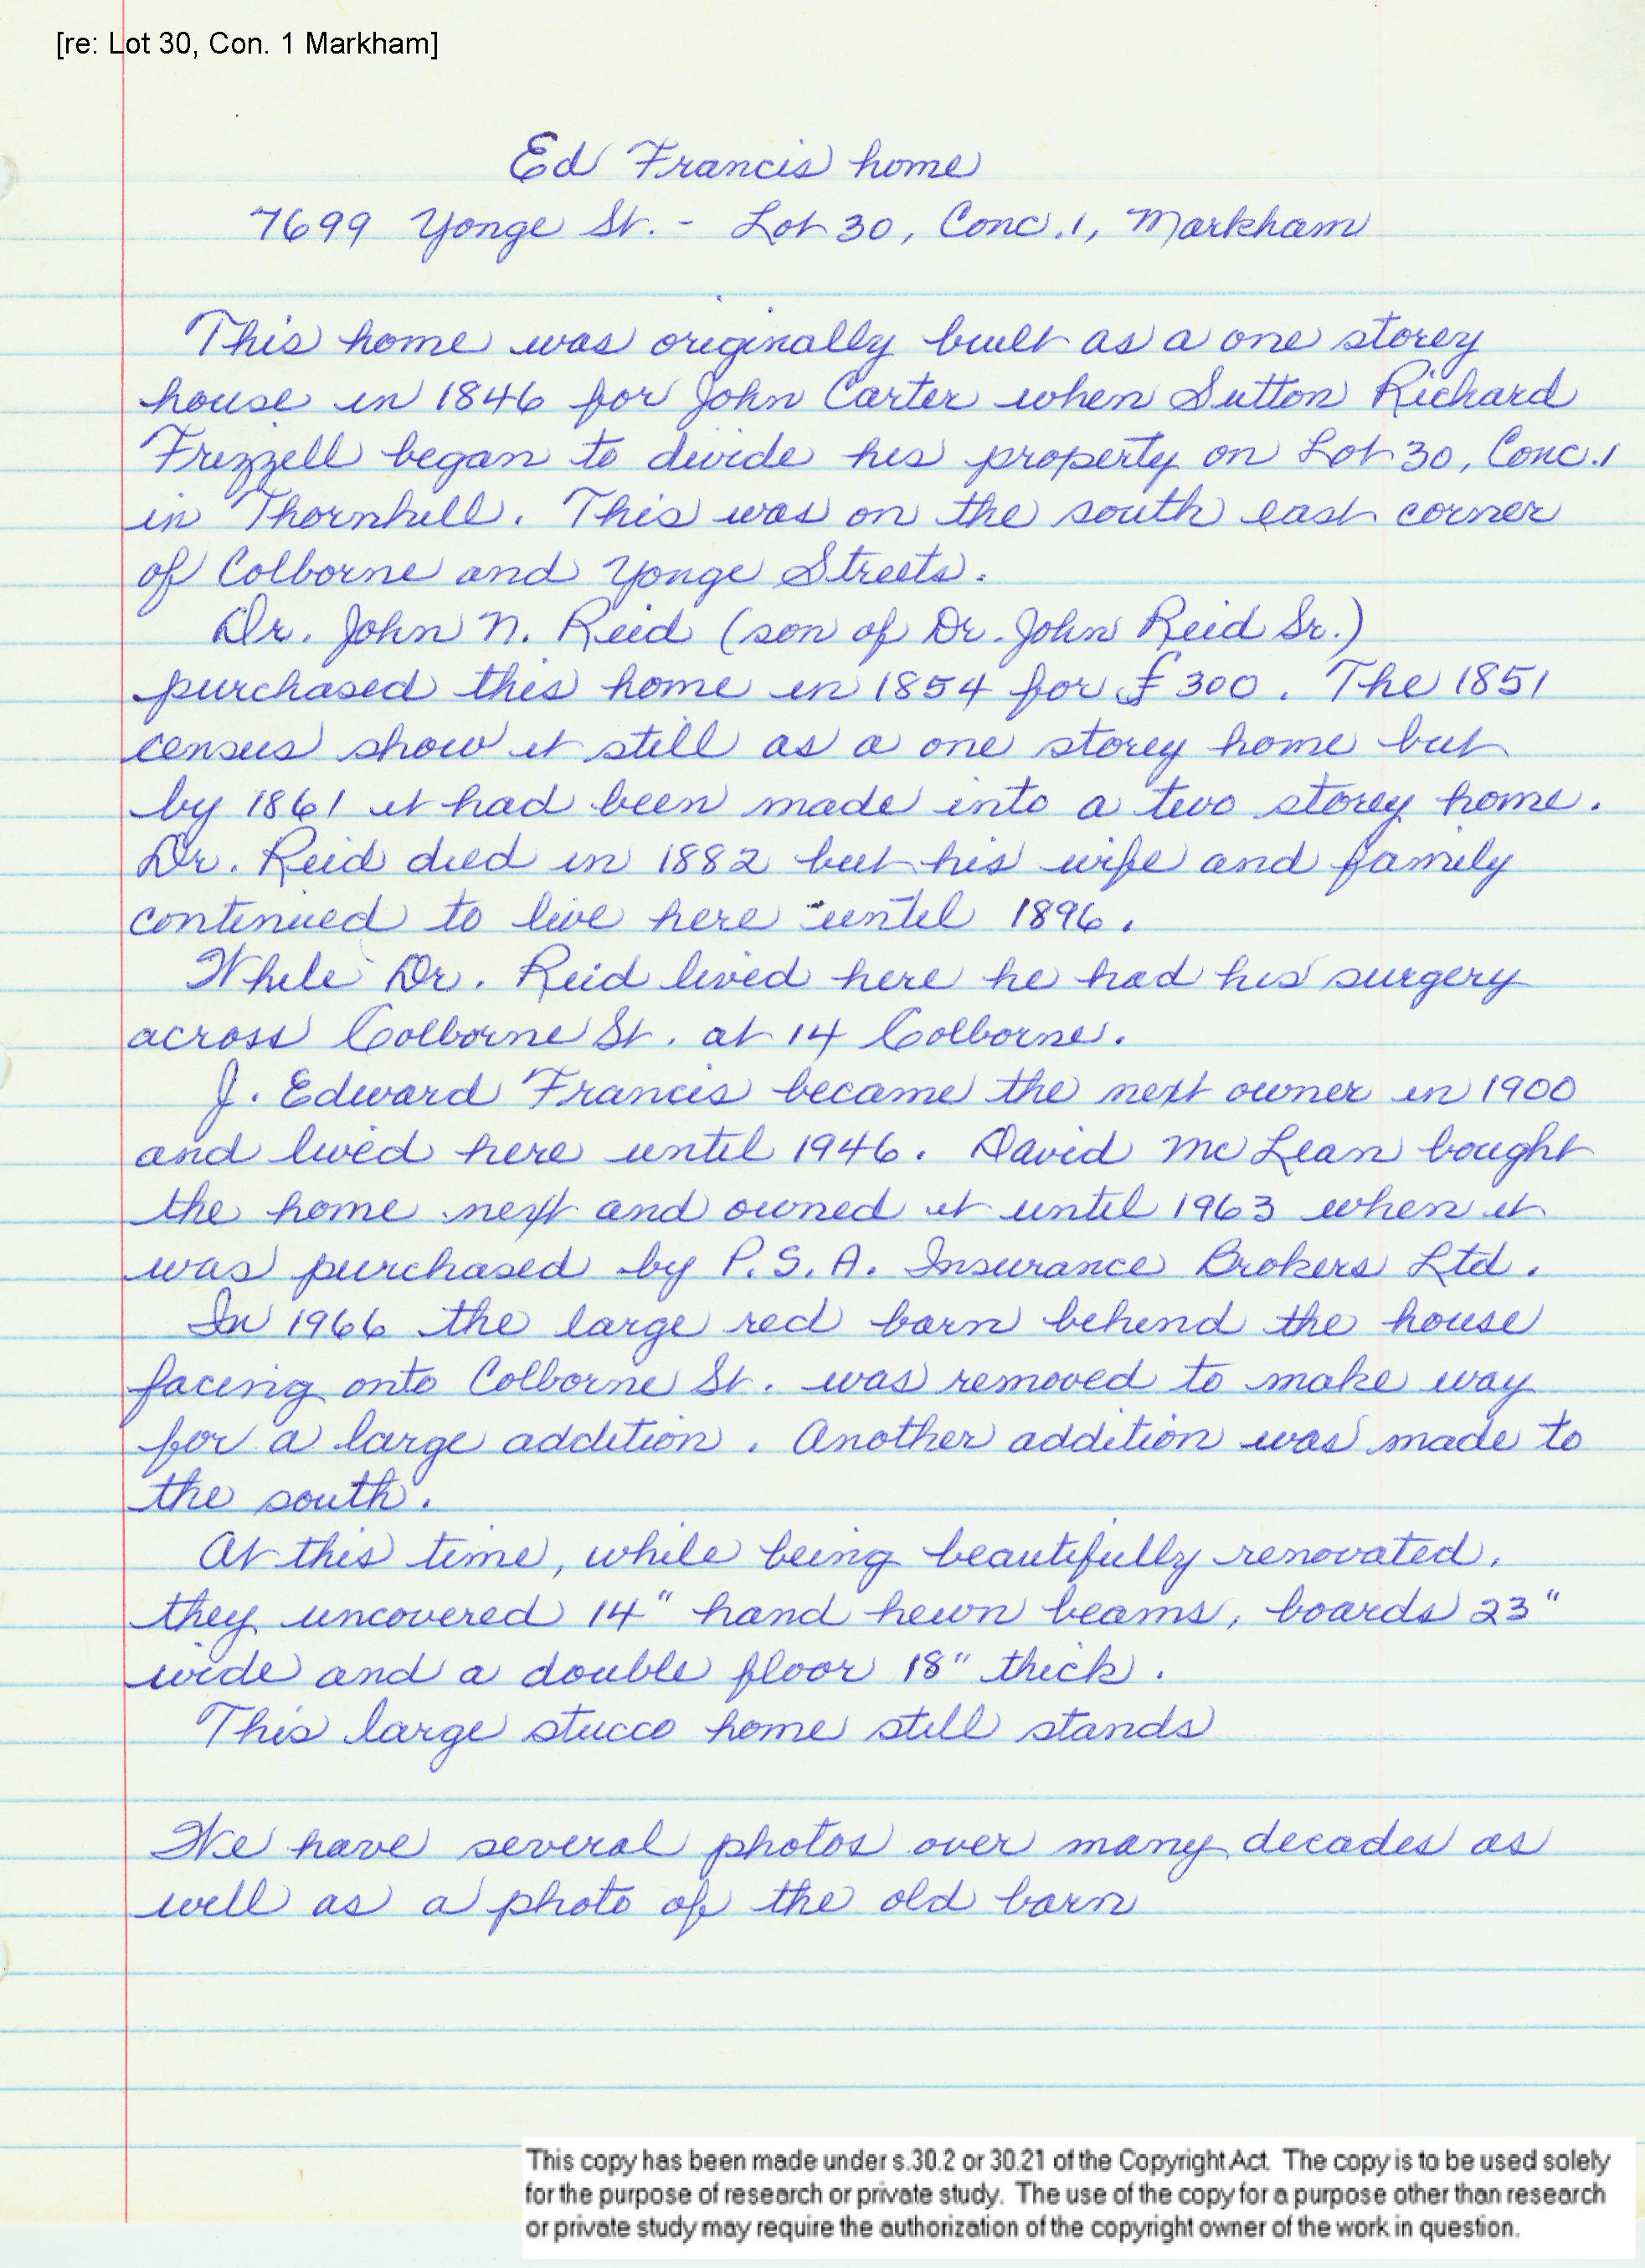 [re: Lot 30, Con. 1 Markham]
Ed Francis home
7699 Yonge St. - Lot 30, Conc. 1, Markham
This home was originally built as a one storey
house in 1846 for John Carter when Sutton Richard
Frizzell began to divide his property on Lot 30, Conc. 1
in Thornhill. This was on the south east corner
of Colborne and Yonge Streets.
Dr. John N. Reid (son of Dr. John Reid Sr.)
purchased this home in 1854 for £300. The 1851
census show it still as a one storey home but
by 1861 it had been made into a two storey home.
Dr. Reid died in 1882 but his wife and family
continued to live here until 1896.
While Dr. Reid lived here he had his surgery
across Colborne St. at 14 Colborne.
J. Edward Francis became the next owner in 1900
and lived here until 1946. David McLean bought
the home next and owned it until 1963 when it
was purchased by P.S.A. Insurance Brokers Ltd.
In 1966 the large red barn behind the house
facing onto Colborne St. was removed to make way
for a large addition. Another addition was made to
the south.
At this time, while being beautifully renovated,
they uncovered 14" hand hewn beams, boards 23"
wide and a double floor 18" thick.
This large stucco home still stands
We have several photos over many decades as
well as a photo of the old barn
This copy has been made under s.30.2 or 30.21 of the Copyright Act. The copy is to be used solely
for the purpose of research or private study. The use of the copy for a purpose other than research
or private study may require the authorization of the copyright owner of the work in question.